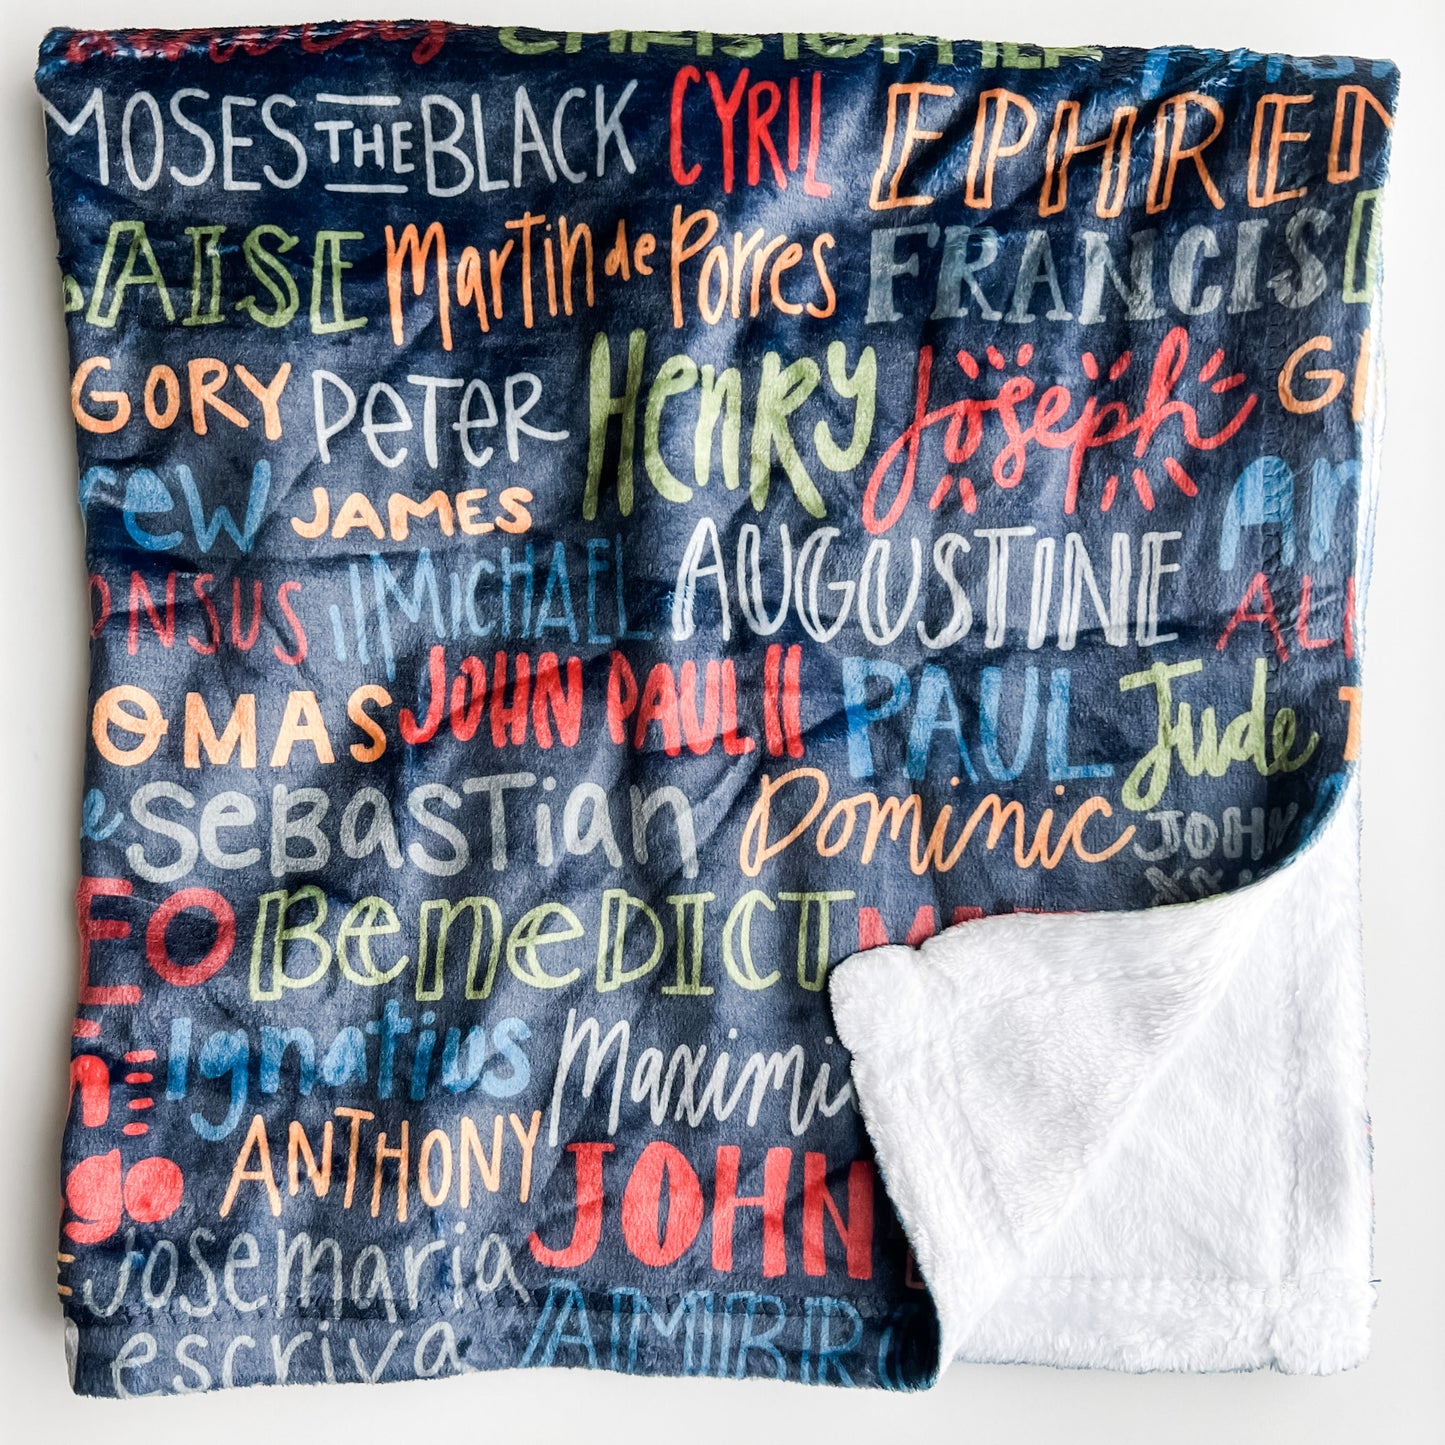 CHRISTOPHER
MOSES THE BLACK CYRIL EPHREM
AISE Martin de Porres FRANCIS
GORY PETER HENRY Joseph G
rew JAMES An
ONSUS MICHAEL AUGUSTINE AL
OMAS JOHN PAUL II PAUL Jude
e SEBASTIAN Dominic JOHN
EO BENEDICT MA
n Ignatius Maximi
go ANTHONY JOHN
Josemaria
escriva AMBRO